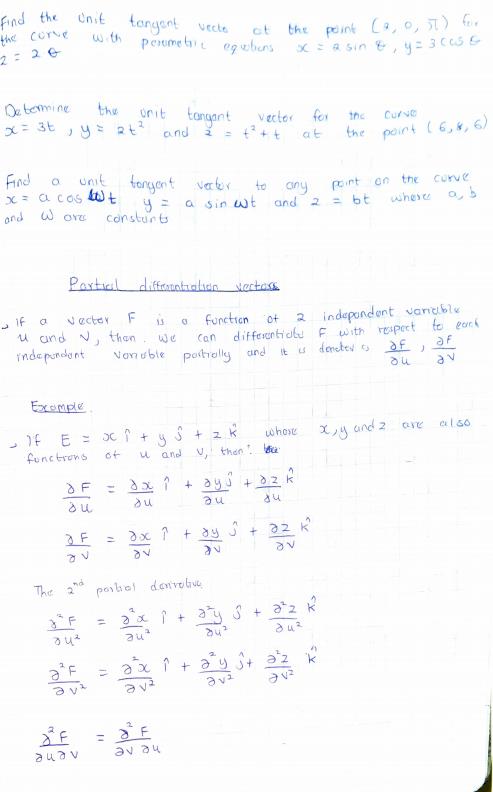 Find the unit tangent vecto at the point (2, 0, π) for
the curve with parametric equations x = 2 sin θ, y = 3 cos θ
z = 2 θ
Determine the unit tangent vector for the curve
x = 3t, y = 2t² and z = t² + t at the point (6, 8, 6)
Find a unit tangent vector to any point on the curve
x = a cos ωt y = a sin ωt and z = bt where a, b
and ω are constants
Partial differentiation vectors
If a vector F is a function of 2 independent variable
u and v, then we can differentiate F with respect to each
independent variable partially and it is denoted as ∂F/∂u, ∂F/∂v
Example.
If F = x î + y ĵ + z k̂ where x, y and z are also
functions of u and v, then:
∂F/∂u = ∂x/∂u î + ∂y/∂u ĵ + ∂z/∂u k̂
∂F/∂v = ∂x/∂v î + ∂y/∂v ĵ + ∂z/∂v k̂
The 2nd partial derivative
∂²F/∂u² = ∂²x/∂u² î + ∂²y/∂u² ĵ + ∂²z/∂u² k̂
∂²F/∂v² = ∂²x/∂v² î + ∂²y/∂v² ĵ + ∂²z/∂v² k̂
∂²F/∂u∂v = ∂²F/∂v∂u